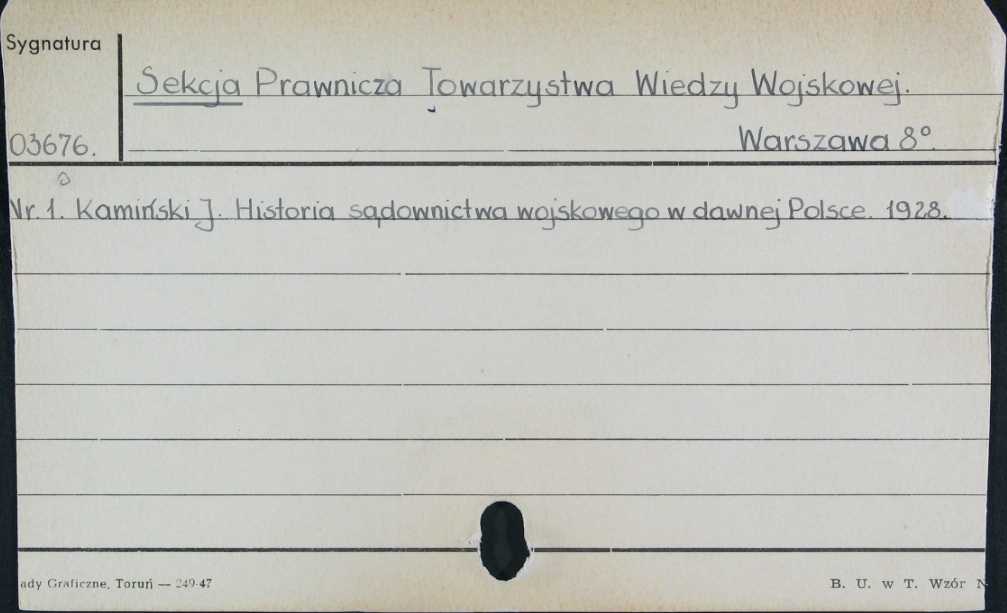 Sygnatura
Sekcja Prawnicza Towarzystwa Wiedzy Wojskowej.
03676.
Warszawa 8°.
Nr. 1. Kamiński J. Historia sądownictwa wojskowego w dawnej Polsce. 1928.
ady Graficzne, Toruń — 249-47
B. U. w T. Wzór N